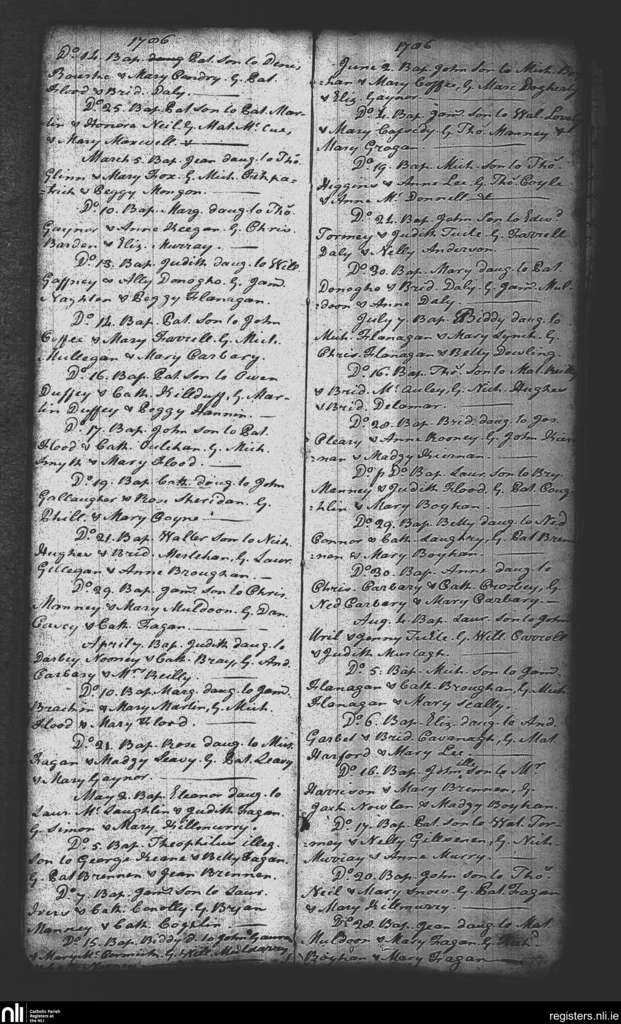 1786
Do. 14. Bap. Pat Son to Denis
Bourke & Mary Condry. G. Pat.
Flood & Brid. Daly.
Do. 25. Bap. Pat Son to Pat. Mar-
tin & Honora Neil. G. Mat. Mc. Cue,
& Mary Maxwell.
March 5. Bap. Jean daug. to Tho.
Glinn & Mary Fox. G. Mich. Fitzpa-
trick & Peggy Mongon.
Do. 10. Bap. Marg. daug. to Tho.
Gaynor & Anne Keegan. G. Chris.
Barden & Eliz. Murray.
Do. 13. Bap. Judith daug. to Will.
Gaffney & Ally Donogho. G. Jams.
Naghten & Peggy Flanagan.
Do. 14. Bap. Pat. Son to John
Coffee & Mary Farrell. G. Mich.
Mullegan & Mary Carbary.
Do. 16. Bap. Pat. Son to Owen
Duffey & Cath. Kilduff. G. Mar-
tin Duffey & Peggy Hannin.
Do. 17. Bap. John Son to Pat.
Flood & Cath. G. Mich.
Smyth & Mary Flood.
Do. 19. Bap. Cath. daug. to John
Gallaugher & Rose Sheridan. G.
Phill. & Mary Coyne
Do. 21. Bap. Walter Son to Nich.
Hughes & Brid. G. Laur.
Gillegan & Anne Broughan.
Do. 29. Bap. Jams. Son to Chris.
Manney & Mary Muldoon. G. Dan.
Cavey & Cath. Fagan.
April 7. Bap. Judith daug. to
Darbey Nooney & Cath. Bray. G. And.
Carbary & Mrs. Reilly
Do. 10. Bap. Marg. daug. to Jams.
Bracken & Mary Martin, G. Mich.
Flood & Mary Flood
Do. 21. Bap. Rose daug. to Mich.
Fagan & Madgy Leavy. G. Pat. Leavy
& Mary Gaynor.
May 2. Bap. Eleanor daug. to
Laur. Mc. Laughlin & Judith Fagan.
G. Simon & Mary Killmurry.
Do. 5. Bap. Theophilus illeg.
Son to George Keane & Betty Fagan.
G. Pat Brennen & Jean Brennen.
Do. 7. Bap. Jams. Son to Laur.
Ivers & Cath. Conolly. G. Bryan
Manney & Cath. Coghlin
Do. 15. Bap. Biddy d. to John
& Mary Mc. Cormick. G. Will.
1786
June 2. Bap. John Son to Mich.
& Mary Coffee, G. Marc Dogherty
& Eliz. Gaynor
Do. 4. Bap. Jams. Son to Wal.
& Mary Cassedy G. Tho. Manney &
Mary Grogan
Do. 19. Bap. Mich. Son to Tho.
Higgins & Anne Lee. G. Tho. Coyle
& Anne Mc. Donnell.
Do. 24. Bap. John Son to Edwd.
Tormey & Judith Tuite. G. Farrell
Daly & Nelly Anderson.
Do. 30. Bap. Mary daug. to Pat.
Donogho & Brid. Daly. G. Jams. Mul-
doon & Anne Daly
July 7 Bap. Biddy daug. to
Mich. Flanagan & Mary Lynch. G.
Chris. Flanagan & Betty Dowling.
Do. 16. Bap. Tho. Son to Mat. Reilly
& Brid. Mc. Auley, G. Nich. Hughes
& Brid. Delamar.
Do. 20. Bap. Brid. daug. to Jos.
Cleary & Anne Rooney. G. John Kier-
nan & Madgy Kiernan.
Do. p. Do. Bap. Laur. Son to Bry.
Manney & Judith Flood. G. Pat. Coug-
hlin & Mary Boyhan.
Do. 29. Bap. Betty daug. to Ned
Connor & Cath. Laughry, G. Pat Bren-
nan & Mary Boyhan.
Do. 30. Bap. Anne daug. to
Chris. Carbary & Cath. Crosbey, G.
Ned Carbary & Mary Carbary.
Aug. 4. Bap. Laur. Son to John
Uril & Jenny Tuite. G. Will. Carroll
& Judith Murtagh.
Do. 5. Bap. Mich. Son to Jams.
Flanagan & Cath Broughan, G. Mich.
Flanagan & Mary Scally.
Do. 6. Bap. Eliz. daug. to And.
Garbet & Brid Cavanagh, G. Mat.
Harford & Mary Lee
Do. 16. Bap. John, ille. Son to Mr.
Harrison & Mary Brennen, G.
Jack Nowlan & Madgy Boyhan.
Do. 17. Bap. Pat Son to Wat. Tor-
mey & Nelly G. Nich.
Murray & Anne Murry.
Do. 20. Bap. John Son to Tho.
Neil & Mary Snow. G. Pat Fagan
& Mary Killmurry
Do. 28. Bap. Jean daug. to Mat.
Muldoon & Mary Fagan. G. Richd.
Boyhan & Mary Fagan
nli
Catholic Parish
Registers at
the NLI
registers.nli.ie